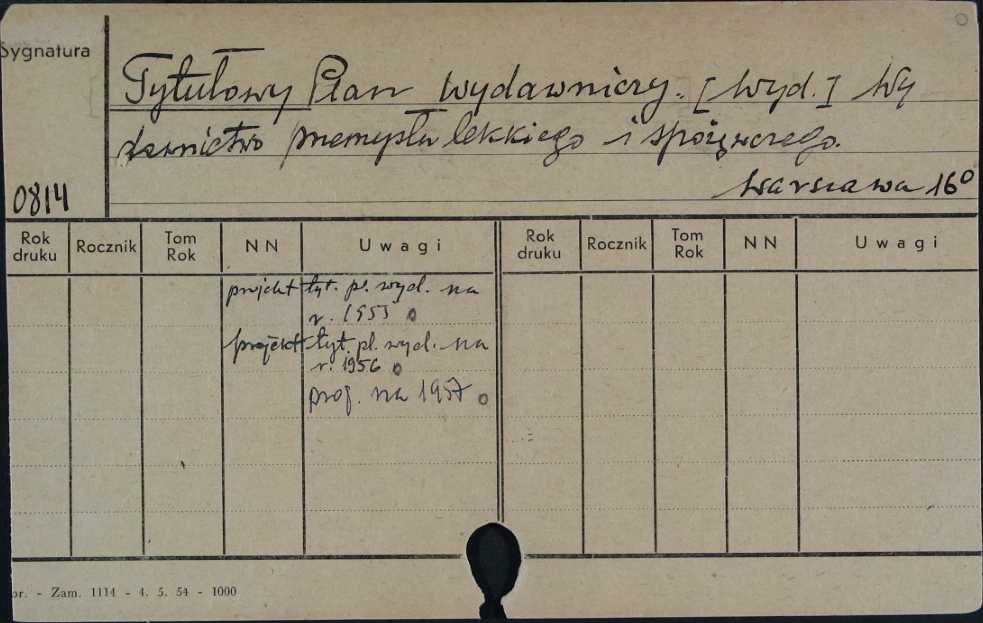 Sygnatura
Tytułowy Plan wydawniczy. [Wyd.] Wy
dawnictwo przemysłu lekkiego i spożywczego.
Warszawa 16°
0814
Rok druku Rocznik Tom Rok NN Uwagi Rok druku Rocznik Tom Rok NN Uwagi
projekt tyt. pl. wyd. na
r. 1955 o
projekt tyt. pl. wyd. na
r. 1956 o
proj. na 1957 o
or. - Zam. 1114 - 4. 5. 54 - 1000